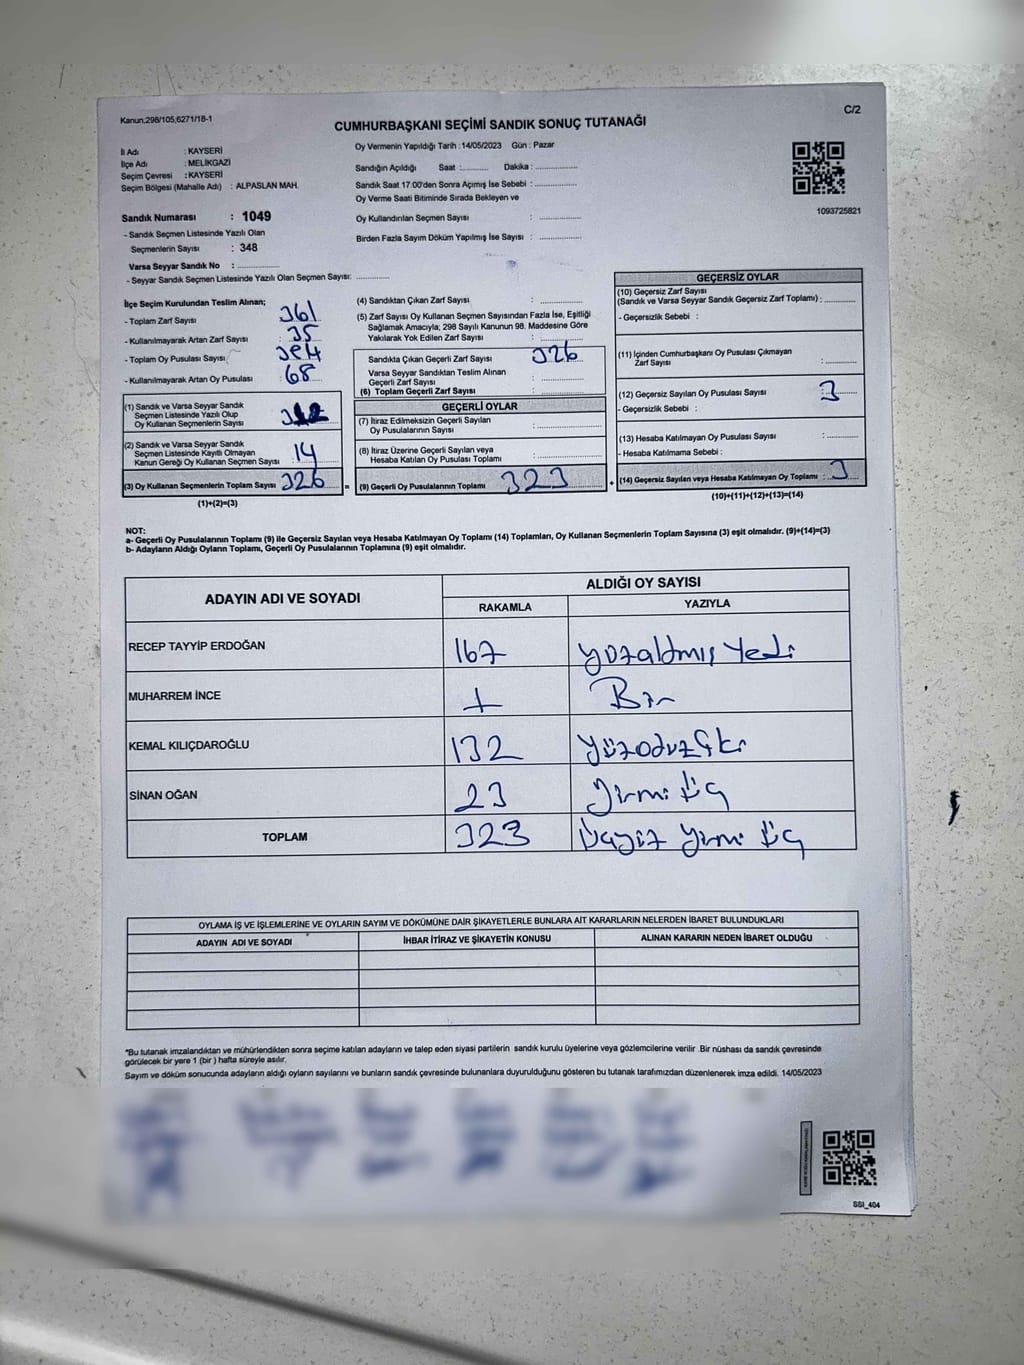 C/2
Kanun,298/105,6271/18-1
CUMHURBAŞKANI SEÇİMİ SANDIK SONUÇ TUTANAĞI
İl Adı : KAYSERİ
İlçe Adı : MELİKGAZİ
Seçim Çevresi : KAYSERİ
Seçim Bölgesi (Mahalle Adı) : ALPASLAN MAH.
Sandık Numarası : 1049
- Sandık Seçmen Listesinde Yazılı Olan
Seçmenlerin Sayısı : 348
Varsa Seyyar Sandık No : ..............
- Seyyar Sandık Seçmen Listesinde Yazılı Olan Seçmen Sayısı: ............
Oy Vermenin Yapıldığı Tarih : 14/05/2023 Gün : Pazar
Sandığın Açıldığı Saat :.......... Dakika : ..............
Sandık Saat 17.00'den Sonra Açımış İse Sebebi : ..............
Oy Verme Saati Bitiminde Sırada Bekleyen ve
Oy Kullandırılan Seçmen Sayısı : ..............
Birden Fazla Sayım Döküm Yapılmış İse Sayısı : ..............
1093725821
İlçe Seçim Kurulundan Teslim Alınan;
- Toplam Zarf Sayısı : 361
- Kullanılmayarak Artan Zarf Sayısı : 35
- Toplam Oy Pusulası Sayısı
- Kullanılmayarak Artan Oy Pusulası : 68
(1) Sandık ve Varsa Seyyar Sandık
Seçmen Listesinde Yazılı Olup
Oy Kullanan Seçmenlerin Sayısı :
(2) Sandık ve Varsa Seyyar Sandık
Seçmen Listesinde Kayıtlı Olmayan
Kanun Gereği Oy Kullanan Seçmen Sayısı : 14
(3) Oy Kullanan Seçmenlerin Toplam Sayısı : 326
(1)+(2)=(3)
(4) Sandıktan Çıkan Zarf Sayısı : ..............
(5) Zarf Sayısı Oy Kullanan Seçmen Sayısından Fazla İse, Eşitliği
Sağlamak Amacıyla; 298 Sayılı Kanunun 98. Maddesine Göre
Yakılarak Yok Edilen Zarf Sayısı : ..............
Sandıkta Çıkan Geçerli Zarf Sayısı : 326
Varsa Seyyar Sandıktan Teslim Alınan
Geçerli Zarf Sayısı : ..............
(6) Toplam Geçerli Zarf Sayısı : ..............
GEÇERLİ OYLAR
(7) İtiraz Edilmeksizin Geçerli Sayılan
Oy Pusulalarının Sayısı : ..............
(8) İtiraz Üzerine Geçerli Sayılan veya
Hesaba Katılan Oy Pusulası Toplamı : ..............
= (9) Geçerli Oy Pusulalarının Toplamı : 323 +
GEÇERSİZ OYLAR
(10) Geçersiz Zarf Sayısı
(Sandık ve Varsa Seyyar Sandık Geçersiz Zarf Toplamı) : ..........
- Geçersizlik Sebebi :
(11) İçinden Cumhurbaşkanı Oy Pusulası Çıkmayan
Zarf Sayısı : ..........
(12) Geçersiz Sayılan Oy Pusulası Sayısı : 3
- Geçersizlik Sebebi :
(13) Hesaba Katılmayan Oy Pusulası Sayısı : ..........
- Hesaba Katılmama Sebebi :
(14) Geçersiz Sayılan veya Hesaba Katılmayan Oy Toplamı : 3
(10)+(11)+(12)+(13)=(14)
NOT:
a- Geçerli Oy Pusulalarının Toplamı (9) ile Geçersiz Sayılan veya Hesaba Katılmayan Oy Toplamı (14) Toplamları, Oy Kullanan Seçmenlerin Toplam Sayısına (3) eşit olmalıdır. (9)+(14)=(3)
b- Adayların Aldığı Oyların Toplamı, Geçerli Oy Pusulalarının Toplamına (9) eşit olmalıdır.
ADAYIN ADI VE SOYADI ALDIĞI OY SAYISI
RAKAMLA YAZIYLA
RECEP TAYYİP ERDOĞAN 167 yüzaltmış Yedi
MUHARREM İNCE 1 Bir
KEMAL KILIÇDAROĞLU 132 yüzotuz iki
SİNAN OĞAN 23 Yirmi Üç
TOPLAM 323 Üçyüz Yirmi Üç
OYLAMA İŞ VE İŞLEMLERİNE VE OYLARIN SAYIM VE DÖKÜMÜNE DAİR ŞİKAYETLERLE BUNLARA AİT KARARLARIN NELERDEN İBARET BULUNDUKLARI
ADAYIN ADI VE SOYADI İHBAR İTİRAZ VE ŞİKAYETİN KONUSU ALINAN KARARIN NEDEN İBARET OLDUĞU
*Bu tutanak imzalandıktan ve mühürlendikten sonra seçime katılan adayların ve talep eden siyasi partilerin sandık kurulu üyelerine veya gözlemcilerine verilir .Bir nüshası da sandık çevresinde
görülecek bir yere 1 (bir ) hafta süreyle asılır.
Sayım ve döküm sonucunda adayların aldığı oyların sayılarını ve bunların sandık çevresinde bulunanlara duyurulduğunu gösteren bu tutanak tarafımızdan düzenlenerek imza edildi. 14/05/2023
SSI_404